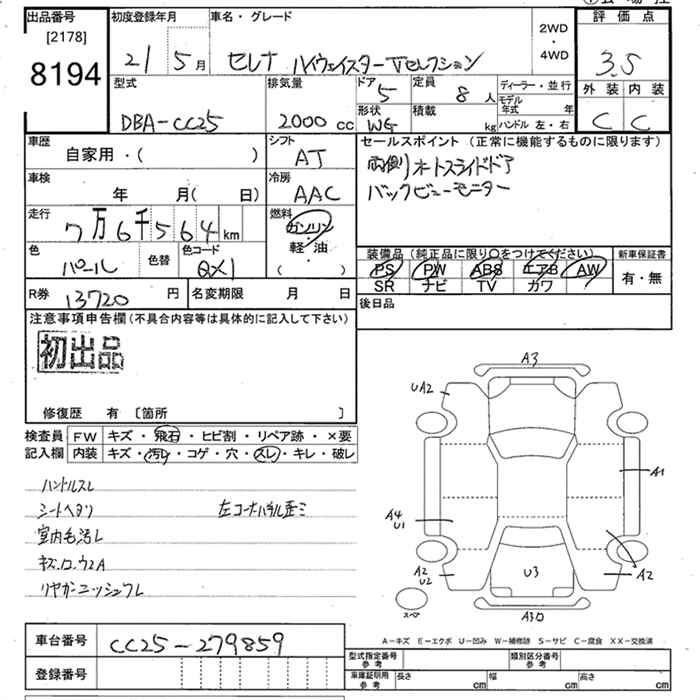 出品番号 初度登録年月 車名・グレード 評価点
[2178] 2WD
8194 21 5月 セレナ ハイウェイスターVセレクション ・ 4WD 3.5
型式 排気量 ドア 5 定員 8人 ディーラー・並行 外装 内装
DBA-CC25 2000cc 形状 WG 積載 kg モデル年式 年 ハンドル 左・右 C C
車歴 シフト セールスポイント(正常に機能するものに限ります)
自家用・( ) AT 両側オートスライドドア
車検 冷房 バックビューモニター
年 月( 日) AAC
走行 燃料
7万6千564km ガソリン
色 色替 色コード 軽・油 装備品(純正品に限り○をつけてください) 新車保証書
パール QX1 ( ) PS PW ABS エアB AW 有・無
SR ナビ TV カワ
R券 13720円 名変期限 月 日 後日品
注意事項申告欄(不具合内容等は具体的に記入して下さい)
初出品
修復歴 有 〔箇所 〕
検査員 FW キズ・飛石・ヒビ割・リペア跡・×要
記入欄 内装 キズ・汚レ・コゲ・穴・スレ・キレ・破レ
ハンドルスレ
シートヘタリ 左コーナーパネル歪ミ
室内毛汚レ
リヤガーニッシュワレ
A3
UA2
A1
A4
U1
A2
U2
U3
A2
A30
スペア
A-キズ E-エクボ U-凹み W-補修跡 S-サビ C-腐食 XX-交換済
車台番号 CC25-279859
型式指定番号 参考 類別区分番号 参考
登録番号
車庫証明用 参考 長さ cm 幅 cm 高さ cm